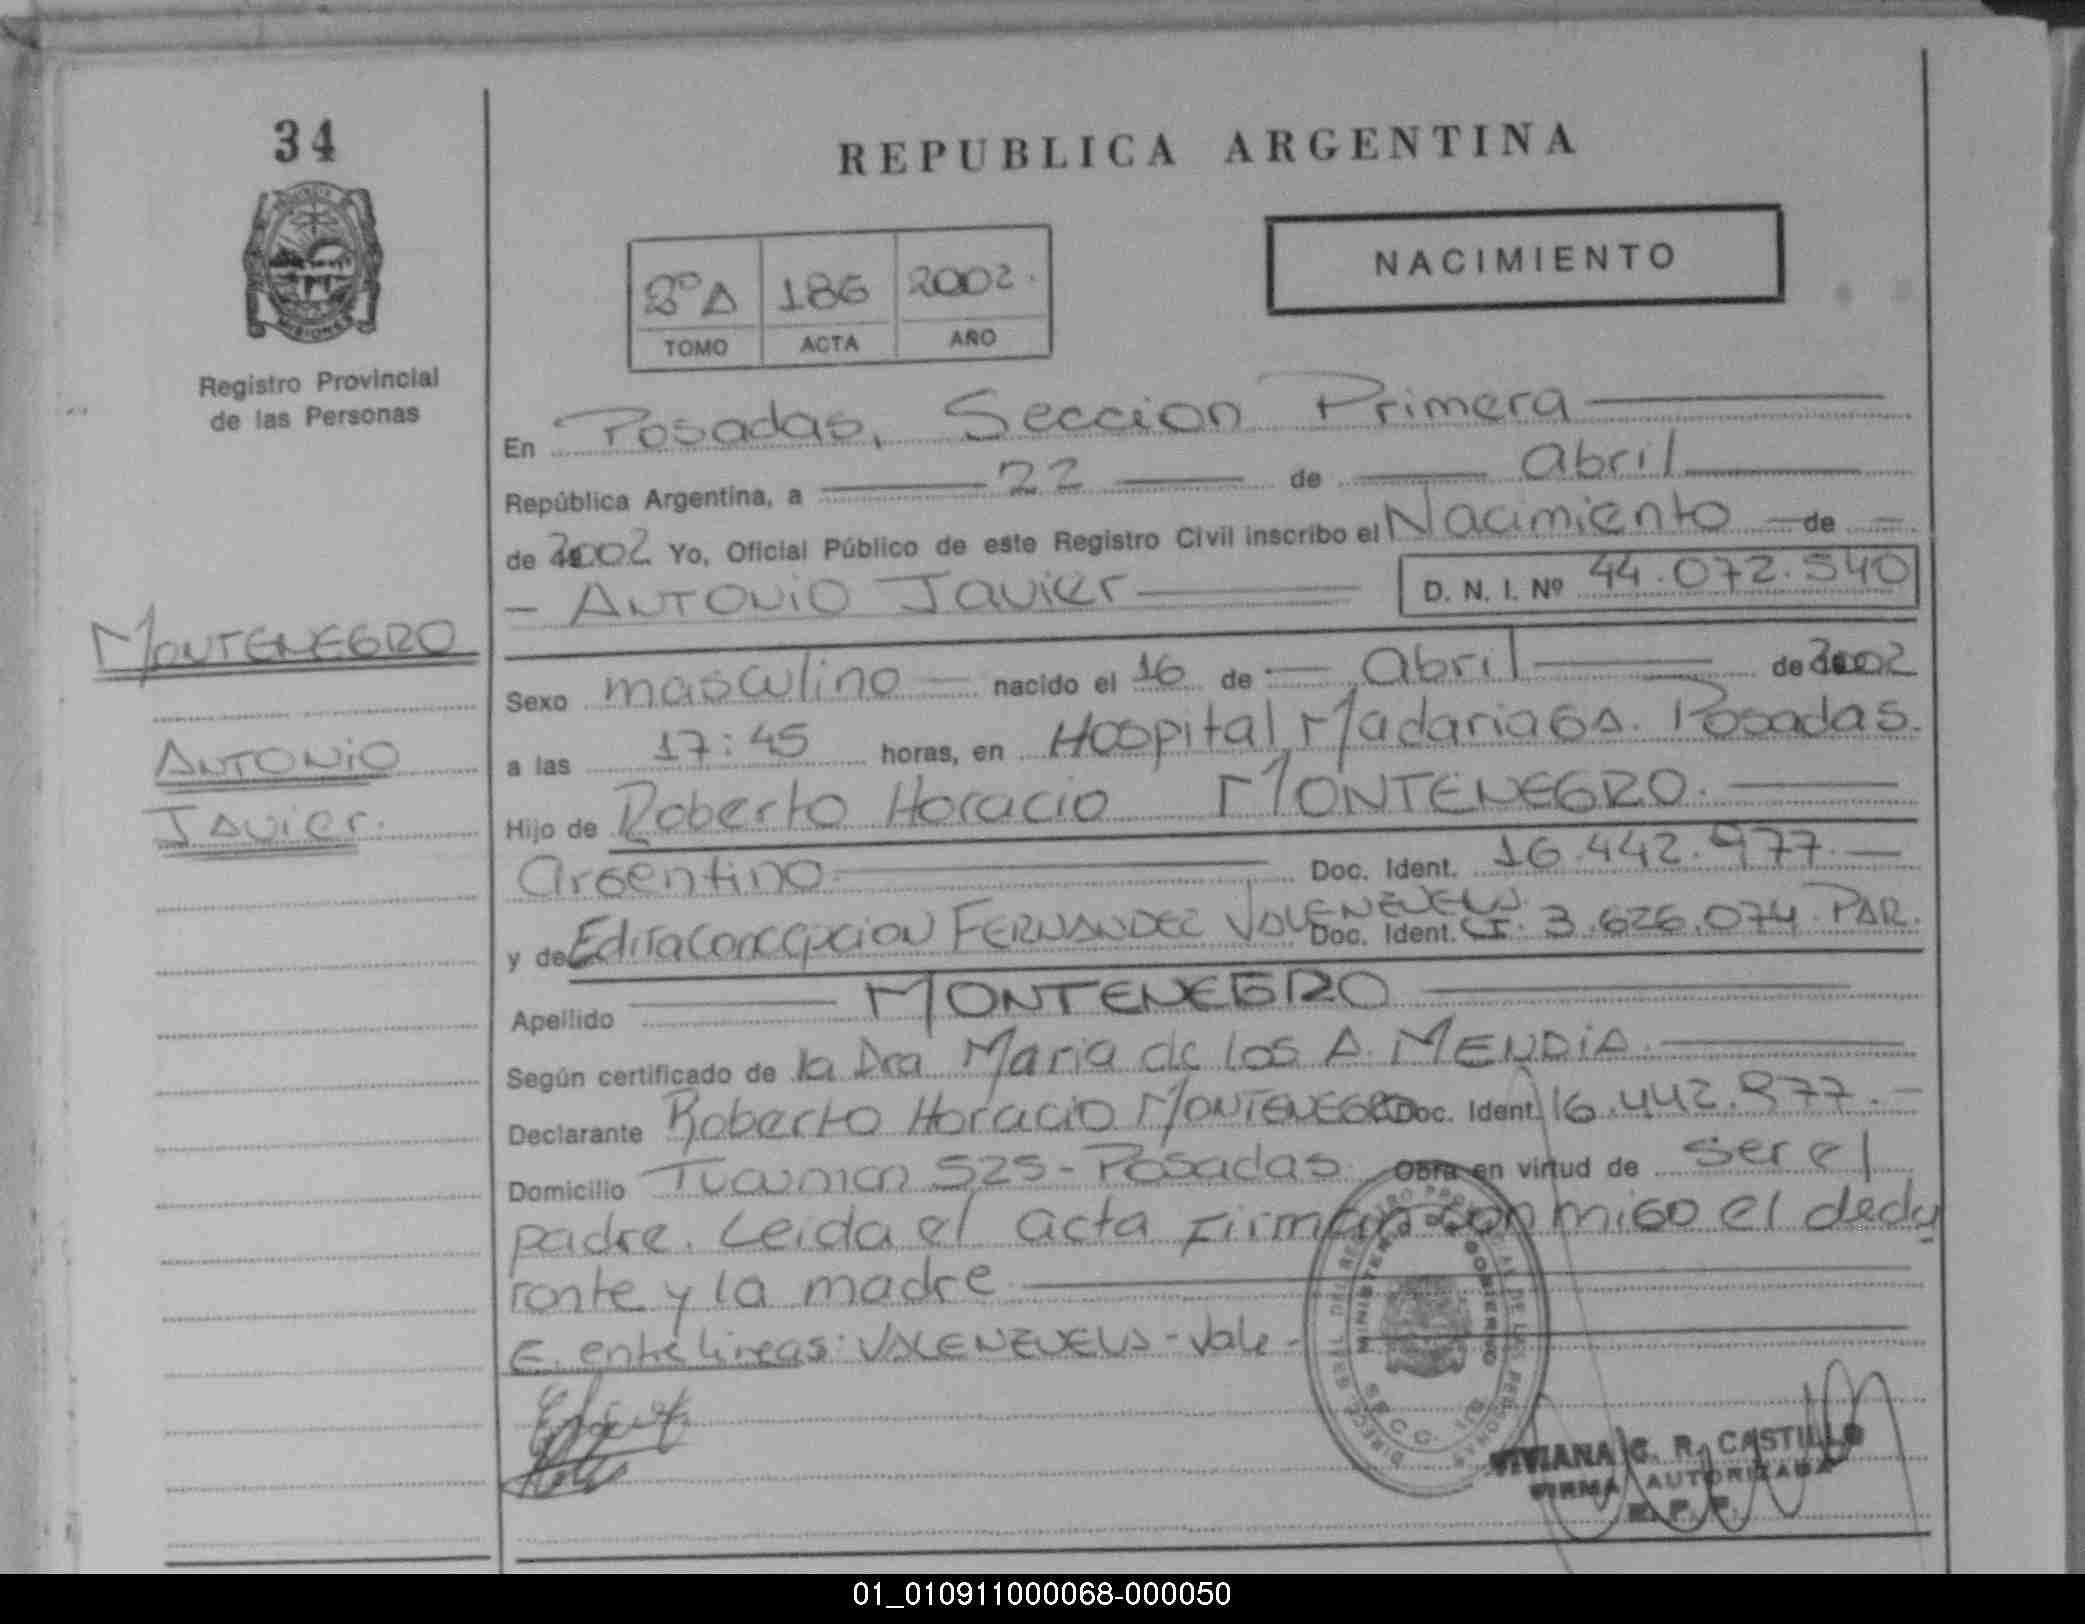 34
REPUBLICA ARGENTINA
NACIMIENTO
2º A 186 2002.
TOMO ACTA AÑO
Registro Provincial
de las Personas
En Posadas, Seccion Primera
República Argentina, a 22 de abril
de 2002 Yo, Oficial Público de este Registro Civil inscribo el Nacimiento de
ANTONIO Javier D. N. I. Nº 44.072.540
MONTENEGRO
ANTONIO
Javier.
Sexo masculino nacido el 16 de abril de 2002
a las 17:45 horas, en Hospital Madariaga. Posadas.
Hijo de Roberto Horacio MONTENEGRO.
argentino Doc. Ident. 16.442.977.
VALENZUELA
y de Edita Concepcion FERNANDEZ Doc. Ident. CI. 3.626.074 PAR.
Apellido MONTENEGRO
Según certificado de la Dra Maria de los A. MENDIA.
Declarante Roberto Horacio MONTENEGRO Doc. Ident. 16.442.977.-
Domicilio Tucuman 525 - Posadas Obra en virtud de ser el
padre. Leida el acta firman conmigo el decla
rante y la madre
E. entre lineas: VALENZUELA - Vale -
MINISTERIO DE GOBIERNO
VIVIANA G. R. CASTILLO
FIRMA AUTORIZADA
R. P. P.
01_010911000068-000050